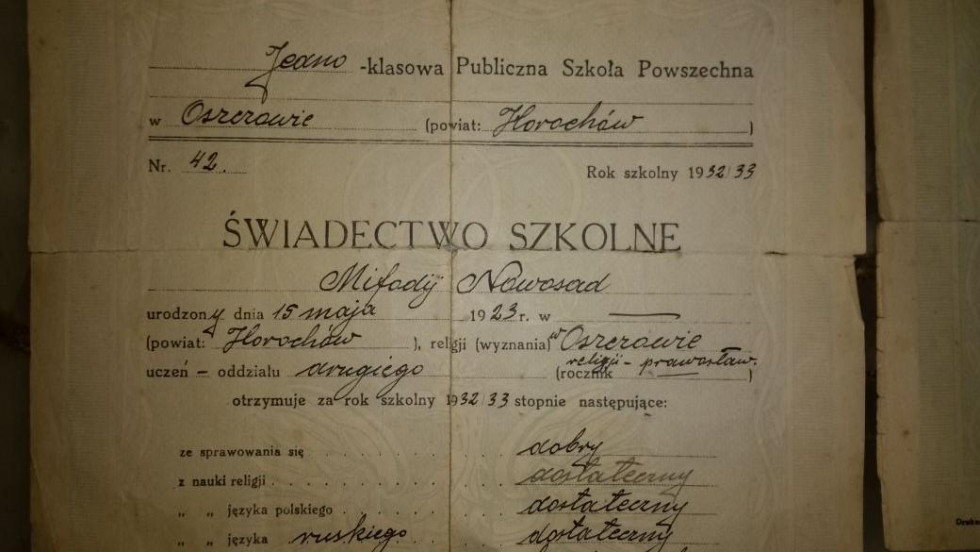 Jedno -klasowa Publiczna Szkoła Powszechna
w Oszczowie (powiat: Horochów )
Nr. 42. Rok szkolny 1932/33
ŚWIADECTWO SZKOLNE
Mifodij Nowosad
urodzony dnia 15 maja 1923 r. w —
(powiat: Horochów ), religji (wyznania) w Oszczowie
religji - prawosław.
uczeń - oddziału drugiego (rocznik — )
otrzymuje za rok szkolny 1932/33 stopnie następujące:
ze sprawowania się . . . . dobry
z nauki religji . . . . dostateczny
„ „ języka polskiego . . . . dostateczny
„ „ języka ruskiego . . dostateczny